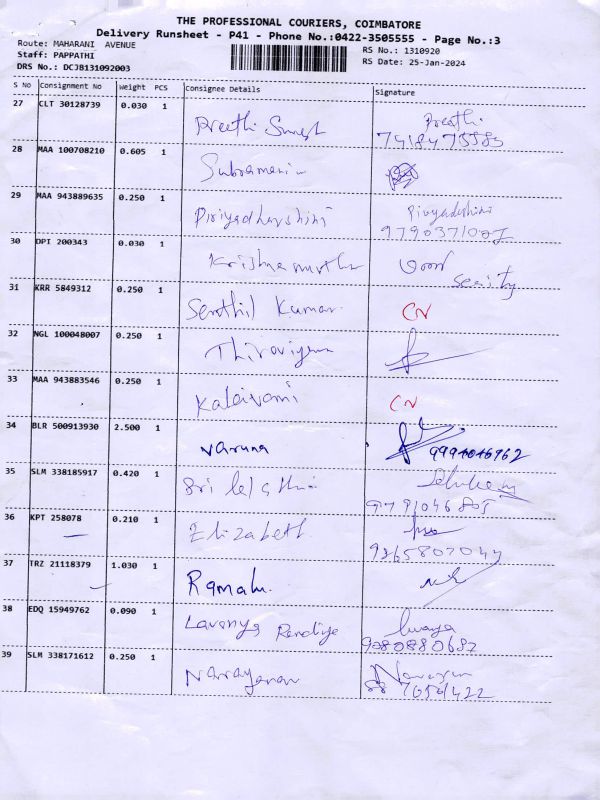 THE PROFESSIONAL COURIERS, COIMBATORE
Delivery Runsheet - P41 - Phone No.:0422-3505555 - Page No.:3
Route: MAHARANI AVENUE
RS No.: 1310920
Staff: PAPPATHI
RS Date: 25-Jan-2024
DRS No.: DCJB131092003
S No Consignment No Weight PCS Consignee Details Signature
27 CLT 30128739 0.030 1 Preethi Suresh Preethi
28 MAA 100708210 0.605 1
29 MAA 943889635 0.250 1 Piriyadharshini
30 DPI 200343 0.030 1
31 KRR 5849312 0.250 1 Senthil Kumar CN
32 NGL 100048007 0.250 1
33 MAA 943883546 0.250 1 Kalaivani CN
34 BLR 500913930 2.500 1 Varuna
35 SLM 338185917 0.420 1 Sri
36 KPT 258078 0.210 1 Elizabeth
9865807044
37 TRZ 21118379 1.030 1 Ramalu.
38 EDQ 15949762 0.090 1 Lavanya
9080880682
39 SLM 338171612 0.250 1 Narayanan